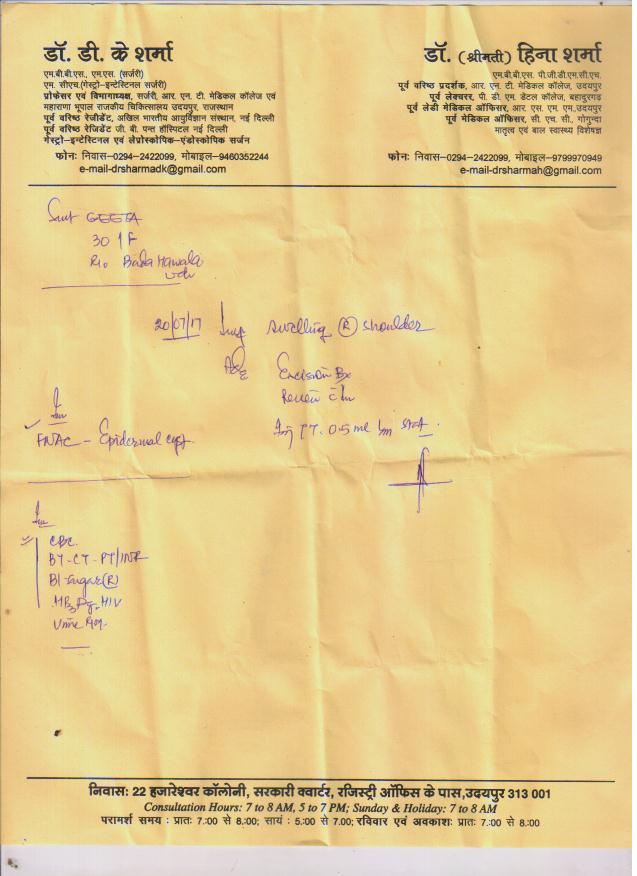 डॉ. डी. के शर्मा
एम.बी.बी.एस., एम.एस. (सर्जरी)
एम. सीएच.(गेस्ट्रो-इन्टेस्टिनल सर्जरी)
प्रोफेसर एवं विभागाध्यक्ष, सर्जरी, आर. एन. टी. मेडिकल कॉलेज एवं
महाराणा भूपाल राजकीय चिकित्सालय उदयपुर, राजस्थान
पूर्व वरिष्ठ रेजीडेंट, अखिल भारतीय आयुर्विज्ञान संस्थान, नई दिल्ली
पूर्व वरिष्ठ रेजिडेंट जी. बी. पन्त हॉस्पिटल नई दिल्ली
गेस्ट्रो-इन्टेस्टिनल एवं लेप्रोस्कोपिक-एंडोस्कोपिक सर्जन
फोनः निवास-0294-2422099, मोबाइल-9460352244
e-mail-drsharmadk@gmail.com
डॉ. (श्रीमती) हिना शर्मा
एम.बी.बी.एस. पी.जी.डी.एम.सी.एच.
पूर्व वरिष्ठ प्रदर्शक, आर. एन. टी. मेडिकल कॉलेज, उदयपुर
पूर्व लेक्चरर, पी. डी. एम. डेंटल कॉलेज, बहादुरगढ़
पूर्व लेडी मेडिकल ऑफिसर, आर. एस. एम. एम. उदयपुर
पूर्व मेडिकल ऑफिसर, सी. एच. सी., गोगुन्दा
मातृत्व एवं बाल स्वास्थ्य विशेषज्ञ
फोनः निवास-0294-2422099, मोबाइल-9799970949
e-mail-drsharmah@gmail.com
Smt GEETA
30 / F
R/o Bada Hawala
Udr
20/07/17 swelling (R) shoulder
Adv Excision Bx
Review
Inj TT. 0.5 ml Im stat.
Inv
FNAC - Epidermal cyst
Inv
CBC
BT-CT-PT/INR
Bl Sugar (R)
HIV
Urine
निवासः 22 हजारेश्वर कॉलोनी, सरकारी क्वार्टर, रजिस्ट्री ऑफिस के पास,उदयपुर 313 001
Consultation Hours: 7 to 8 AM, 5 to 7 PM; Sunday & Holiday: 7 to 8 AM
परामर्श समय : प्रातः 7:00 से 8:00; सायं : 5:00 से 7.00; रविवार एवं अवकाशः प्रातः 7.:00 से 8:00